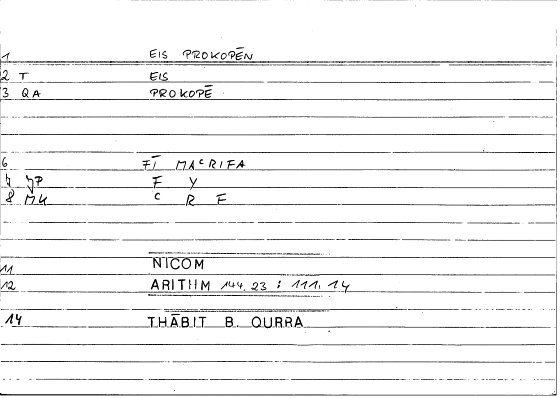 1 EIS PROKOPĒN
2 T EIS
3 QA PROKOPĒ
6 FĪ MAᶜRIFA
F Y
8 MK ᶜ R F
11 NICOM
12 ARITHM 144.23 : 111.14
14 THĀBIT B. QURRA